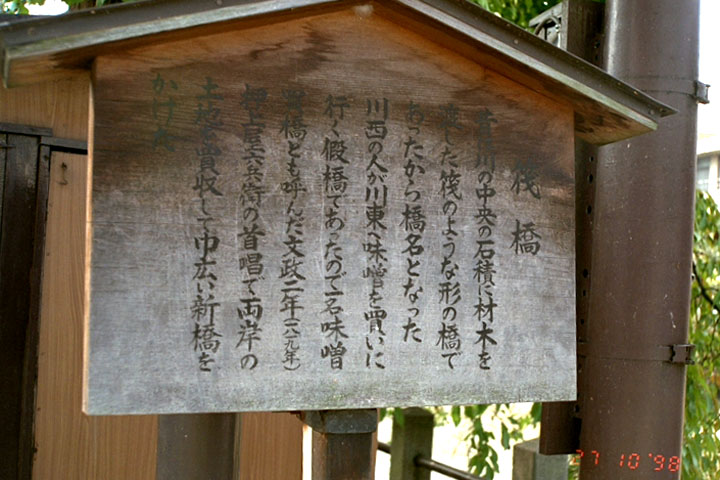 筏橋
吉川の中央の石積に材木を
渡した筏のような形の橋で
あったから橋名となった
川西の人が川東へ味噌を買いに
行く假橋であったので一名味噌
買橋とも呼んだ文政二年(一八一九年)
押上屋六兵衛の首唱で両岸の
土地を買収して巾広い新橋を
かけた
27 10 '98